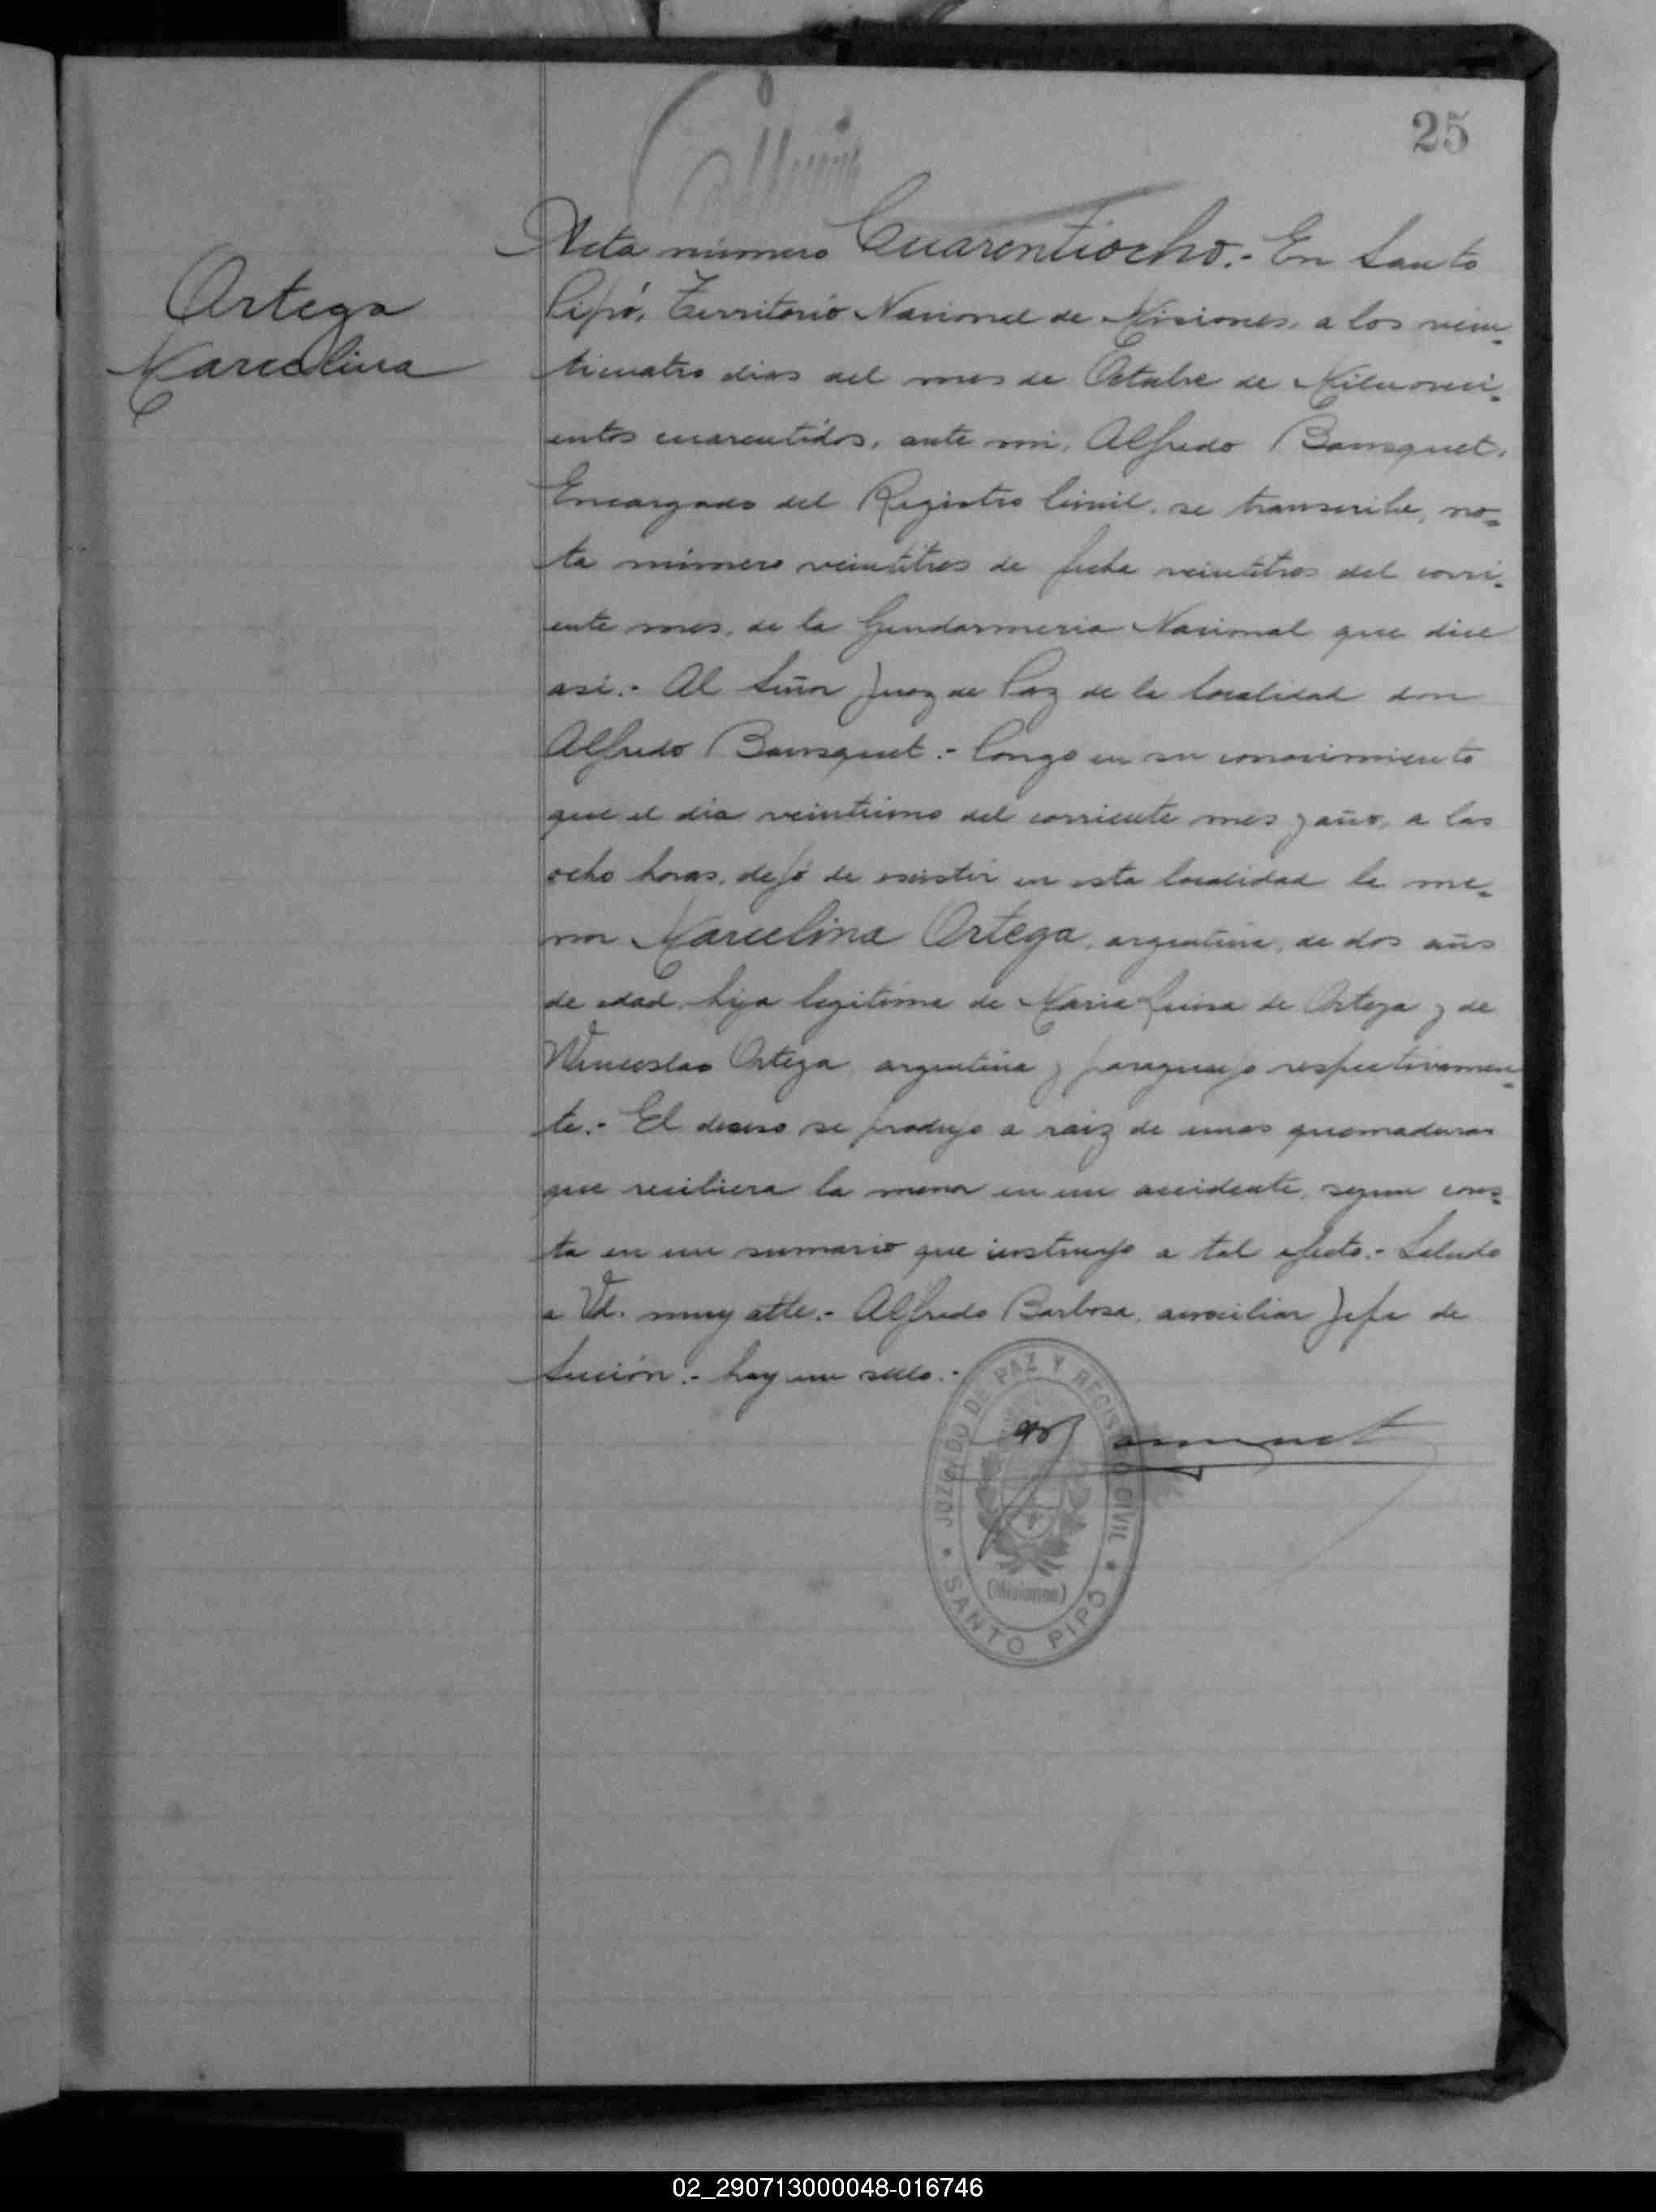 25
Ortega
Marcelina
Acta número Cuarentiocho.- En Santo
Pipó, Territorio Nacional de Misiones, a los vein-
ticuatro dias del mes de Octubre de Milnoveci-
entos cuarentidos, ante mi, Alfredo Bousquet,
Encargado del Registro Civil, se transcribe, no-
ta número veintitres de fecha veintitres del corri-
ente mes, de la Gendarmeria Nacional que dice
asi:- Al Señor Juez de Paz de la localidad don
Alfredo Bousquet.- Pongo en su conocimiento
que el dia veintiuno del corriente mes y año, a las
ocho horas, dejó de existir en esta localidad la me-
nor Marcelina Ortega, argentina, de dos años
de edad, hija legitima de Maria Luisa de Ortega y de
Wenceslao Ortega argentina y paraguayo respectivamen-
te.- El deceso se produjo a raiz de unas quemaduras
que recibiera la menor en un accidente, segun cons-
ta en un sumario que instruyo a tal efecto.- Saludo
a Vd. muy atte.- Alfredo Barbosa, auxiliar Jefe de
Sección.- hay un sello.-
JUZGADO DE PAZ Y REGISTRO CIVIL
(Misiones)
SANTO PIPÓ
02_290713000048-016746